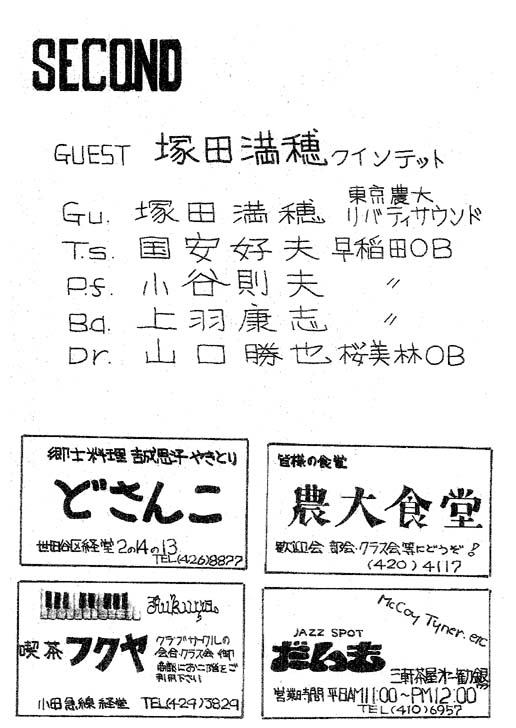 SECOND
GUEST 塚田満穂クインテット
Gu. 塚田満穂 東京農大リバティサウンド
T.s. 国安好夫 早稲田OB
P.f. 小谷則夫 〃
Ba. 上羽康志 〃
Dr. 山口勝也 桜美林OB
郷土料理 やきとり
どさんこ
世田谷区経堂2の14の13
TEL(426)8877
皆様の食堂
農大食堂
歓迎会 部会・クラス会等にどうぞ!
(420)4117
Fukuya.
喫茶フクヤ
クラブサークルの
会合・クラス会
利用下さい
小田急線経堂 TEL(429)3829
McCoy Tyner. etc
JAZZ SPOT
三軒茶屋
営業時間 平日AM11:00~PM12:00
TEL(410)6957